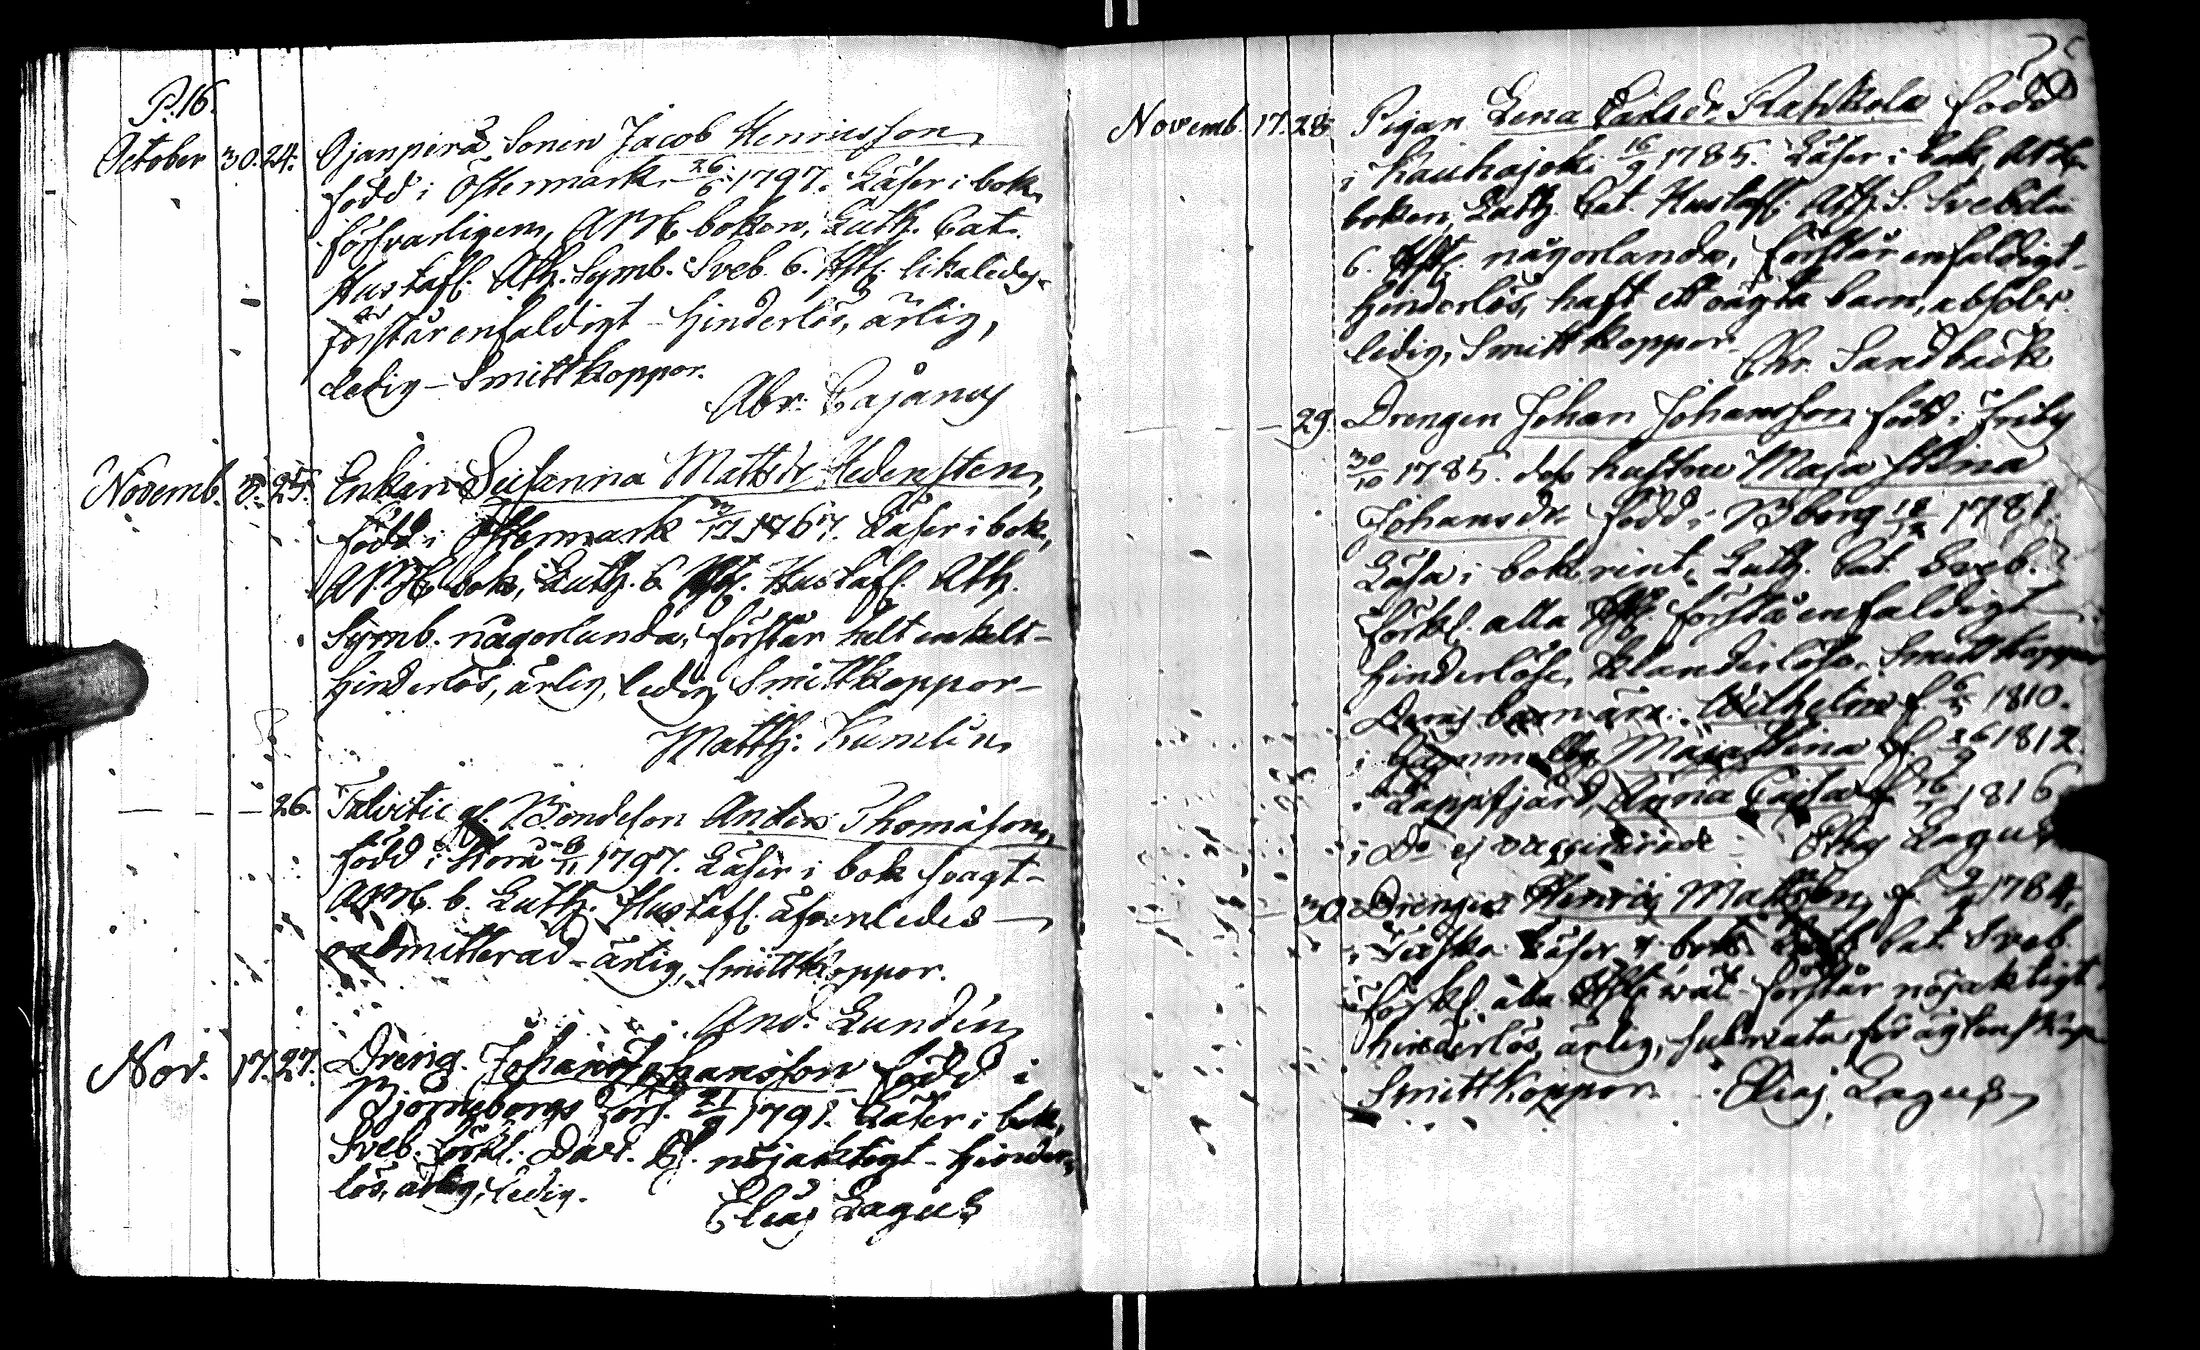 P. 16.
October 30. 24. Ojanperä Sonen Jacob Henricsson
född i Östermark 26/6 1797. Läser i bok
försvarligen, ABC boken, Luth. Cat.
Hustafl. Ath. Symb. Sveb. 6. Hft. likaledes
förstår enfaldigt - hinderlös, ärlig,
ledig - Smittkoppor.
Abr. Cajanus
Novemb. 25. Enkan Susanna Mattsdr Hedensten
född i Östermark 1767. Läser i bok,
bok, Luth. 6 Hft. Hustafl. Ath.
Symb. någorlunda, förstår helt enkelt -
hinderlös, ärlig, ledig Smittkoppor -
Matth: Kumlin
26. Talvitie Bondeson Anders Thomasson,
född i Storå 1797. Läser i bok svagt -
b. Luth. Hustafl. äfvenledes
admitterad - ärlig, Smittkoppor.
And. Lundin
Nov. 17. 27. Dreng. Johan Johansson född i
Björneborgs förs. 21/9 1791. Läser i bok,
Sveb. förkl. Dav. nöjaktigt - hinder-
lös, ärlig, ledig.
Elias Lagus
Novemb. 17. 28 Pigan Lena född
i Kauhajoki 16/9 1785. Läser i bok,
boken, Luth. Cat. Hustafl. Ath. S. Svebilii
6. Hft. någorlunda, förstår enfaldigt -
hinderlös, haft ett oägta barn, absolv.
ledig, Smittkoppor -
Chr. Sandbäck
29. Drengen Johan Johansson född i
30/10 1785. dess hustru Maja Stina
Johansdr. född i Bborg 1781.
Läsa i bok rent, Luth. Cat. Sveb.
förkl. alla Hft. förstå enfaldigt
hinderlöse, klanderlöse. Smittkoppor
Deras barn äro: Wilhelm f. 1810.
i Maja Stina f. 26/9 1812
i Lappfjärd, Anna Cajsa f. 1816
i Do ej vaccinerade - Elias Lagus
30. Drengen Henric Mattsson, f. 1784,
i Läser i bok Luth. Cat. Sveb.
förkl. alla Hft. väl - förstår nöjaktigt
hinderlös, ärlig, för ägtenskap
Smittkoppor. Elias Lagus